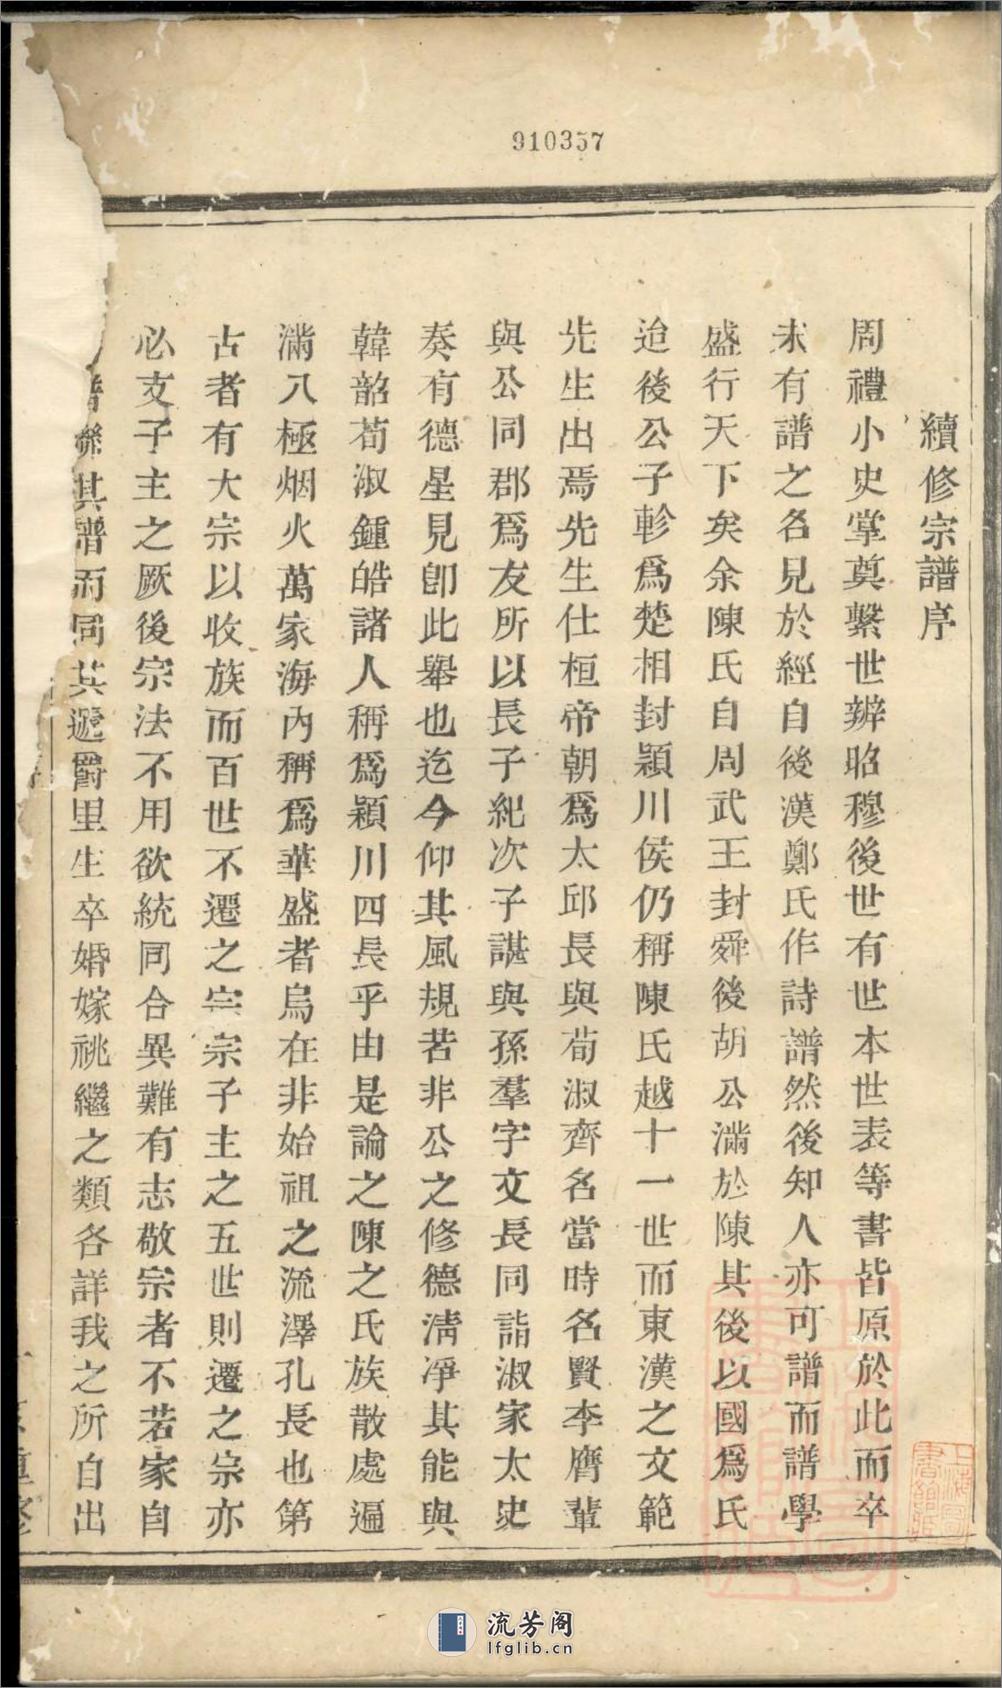 910357
續修宗譜序
周禮小史掌奠繫世辨昭穆後世有世本世表等書皆原於此而卒
未有譜之名見於經自後漢鄭氏作詩譜然後知人亦可譜而譜學
盛行天下矣余陳氏自周武王封舜後胡公滿於陳其後以國爲氏
迨後公子軫爲楚相封潁川侯仍稱陳氏越十一世而東漢之文範
先生出焉先生仕桓帝朝爲太邱長與荀淑齊名當時名賢李膺輩
與公同郡爲友所以長子紀次子諶與孫羣字文長同詣淑家太史
奏有德星見卽此舉也迄今仰其風規若非公之修德淸淨其能與
韓韶荀淑鍾皓諸人稱爲潁川四長乎由是論之陳之氏族散處遍
滿八極烟火萬家海內稱爲華盛者烏在非始祖之流澤孔長也第
古者有大宗以收族而百世不遷之宗宗子主之五世則遷之宗亦
必支子主之厥後宗法不用欲統同合異難有志敬宗者不若家自
譜聯其譜而同其遞爵里生卒婚嫁祧繼之類各詳我之所自出
上海圖書館藏
流芳阁
lfglib.cn